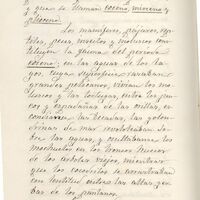 y que se llaman eoceno, mioceno y
plioceno.
Los mamíferos, pájaros, rep-
tiles, peces, insectos y moluscos cons-
tituyen la fauna del período
eoceno; en las aguas de los la-
gos, cuya superficie rasaban
grandes pelicanos, vivían los mo-
luscos y las tortugas, entre los jun-
cos y espadañas de las orillas, en-
contraban las becadas, las golon-
drinas de mar revoloteaban so-
bre las aguas, y ocultábanse los
mochuelos en los troncos huecos
de los árboles viejos, mientras
que los cocodrilos se arrastraban
con lentitud entre las altas yer-
bas de los pantanos.